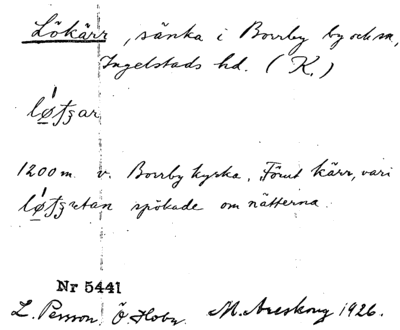 Lökärr, sänka i Borrby by och sn,
Ingelstads hd. (K.)
1200 m v. Borrby kyrka. Förut kärr, vari
spökade om nätterna.
Nr 5441
L. Persson Ö. Hoby. M. Areskoug 1926.